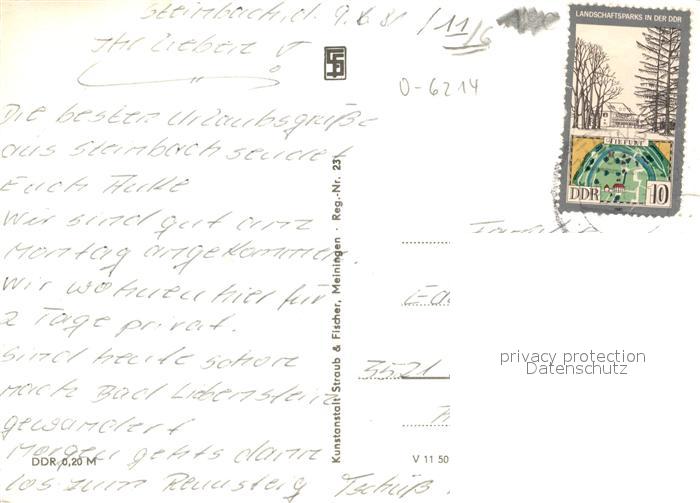 Steinbach, d. 9.6.81 /11/6
Ihr Lieben
Die besten Urlaubsgrüße
aus Steinbach sendet
Euch
Wir sind gut am
Montag angekommen.
Wir wohnen hier für
2 Tage privat.
Sind heute schon
nach Bad Liebenstein
gewandert
Morgen gehts dann
los zum Rennsteig Tschüß.
DDR 0,20 M
Kunstanstalt Straub & Fischer, Meiningen · Reg.-Nr. 23
V 11 50
0-6214
LANDSCHAFTSPARKS IN DER DDR
TIEFURT
DDR 10
3521
privacy protection
Datenschutz